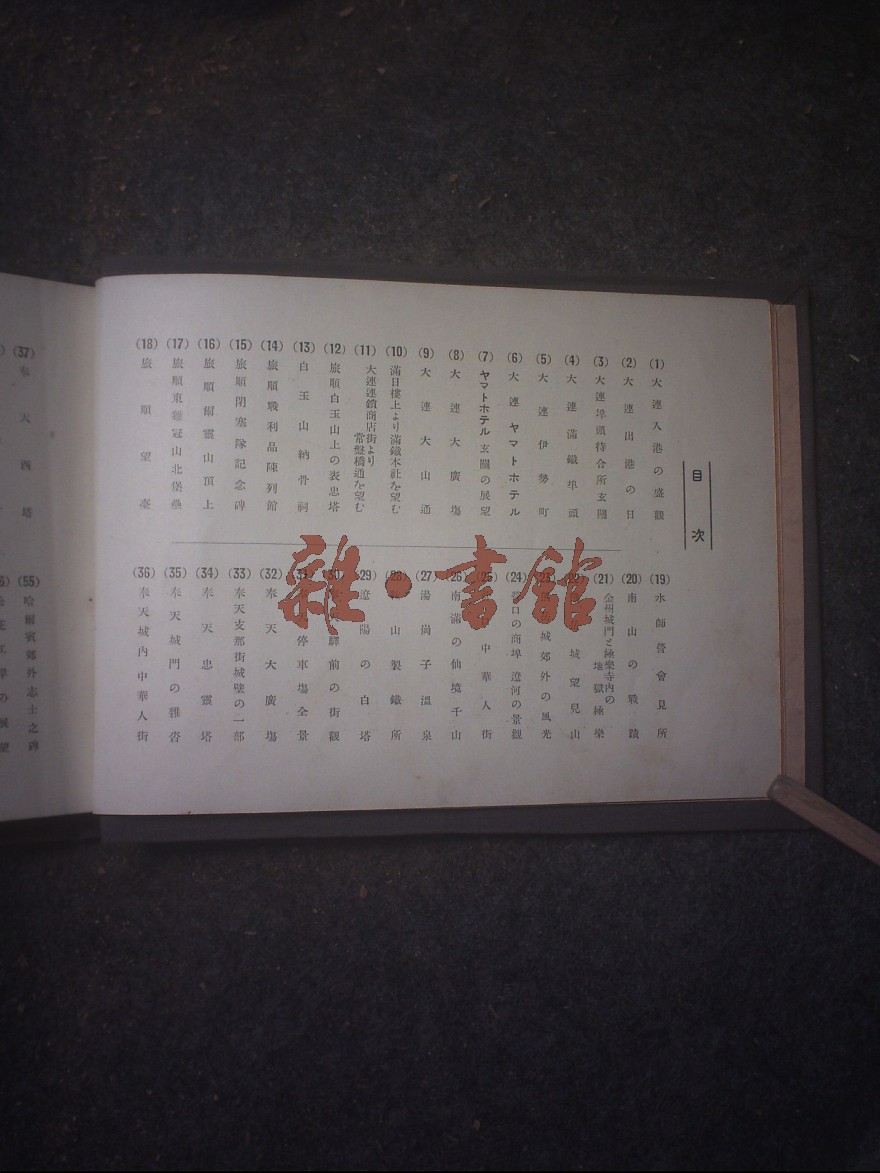 目次
(1) 大連入港の盛觀
(2) 大連出港の日
(3) 大連埠頭待合所玄關
(4) 大連滿鐵埠頭
(5) 大連伊勢町
(6) 大連ヤマトホテル
(7) ヤマトホテル玄關の展望
(8) 大連大廣場
(9) 大連大山通
(10) 滿日樓上より滿鐵本社を望む
(11) 大連連鎖商店街より
常盤橋通を望む
(12) 旅順白玉山上の表忠塔
(13) 白玉山納骨祠
(14) 旅順戰利品陳列館
(15) 旅順閉塞隊記念碑
(16) 旅順爾靈山頂上
(17) 旅順東雞冠山北堡壘
(18) 旅順望臺
(19) 水師營會見所
(20) 南山の戰蹟
(21) 金州城門と極樂寺内の
地獄極樂
(22) 城望兒山
(23) 城郊外の風光
(24) 口の商埠遼河の景觀
(25) 中華人街
(26) 南滿の仙境千山
(27) 湯崗子溫泉
(28) 山製鐵所
(29) 遼陽の白塔
(30) 驛前の街觀
(31) 停車場全景
(32) 奉天大廣場
(33) 奉天支那街城壁の一部
(34) 奉天忠靈塔
(35) 奉天城門の雜沓
(36) 奉天城内中華人街
(37) 奉天西塔
(55) 哈爾賓郊外志士之碑
江岸の展望
雜·書館